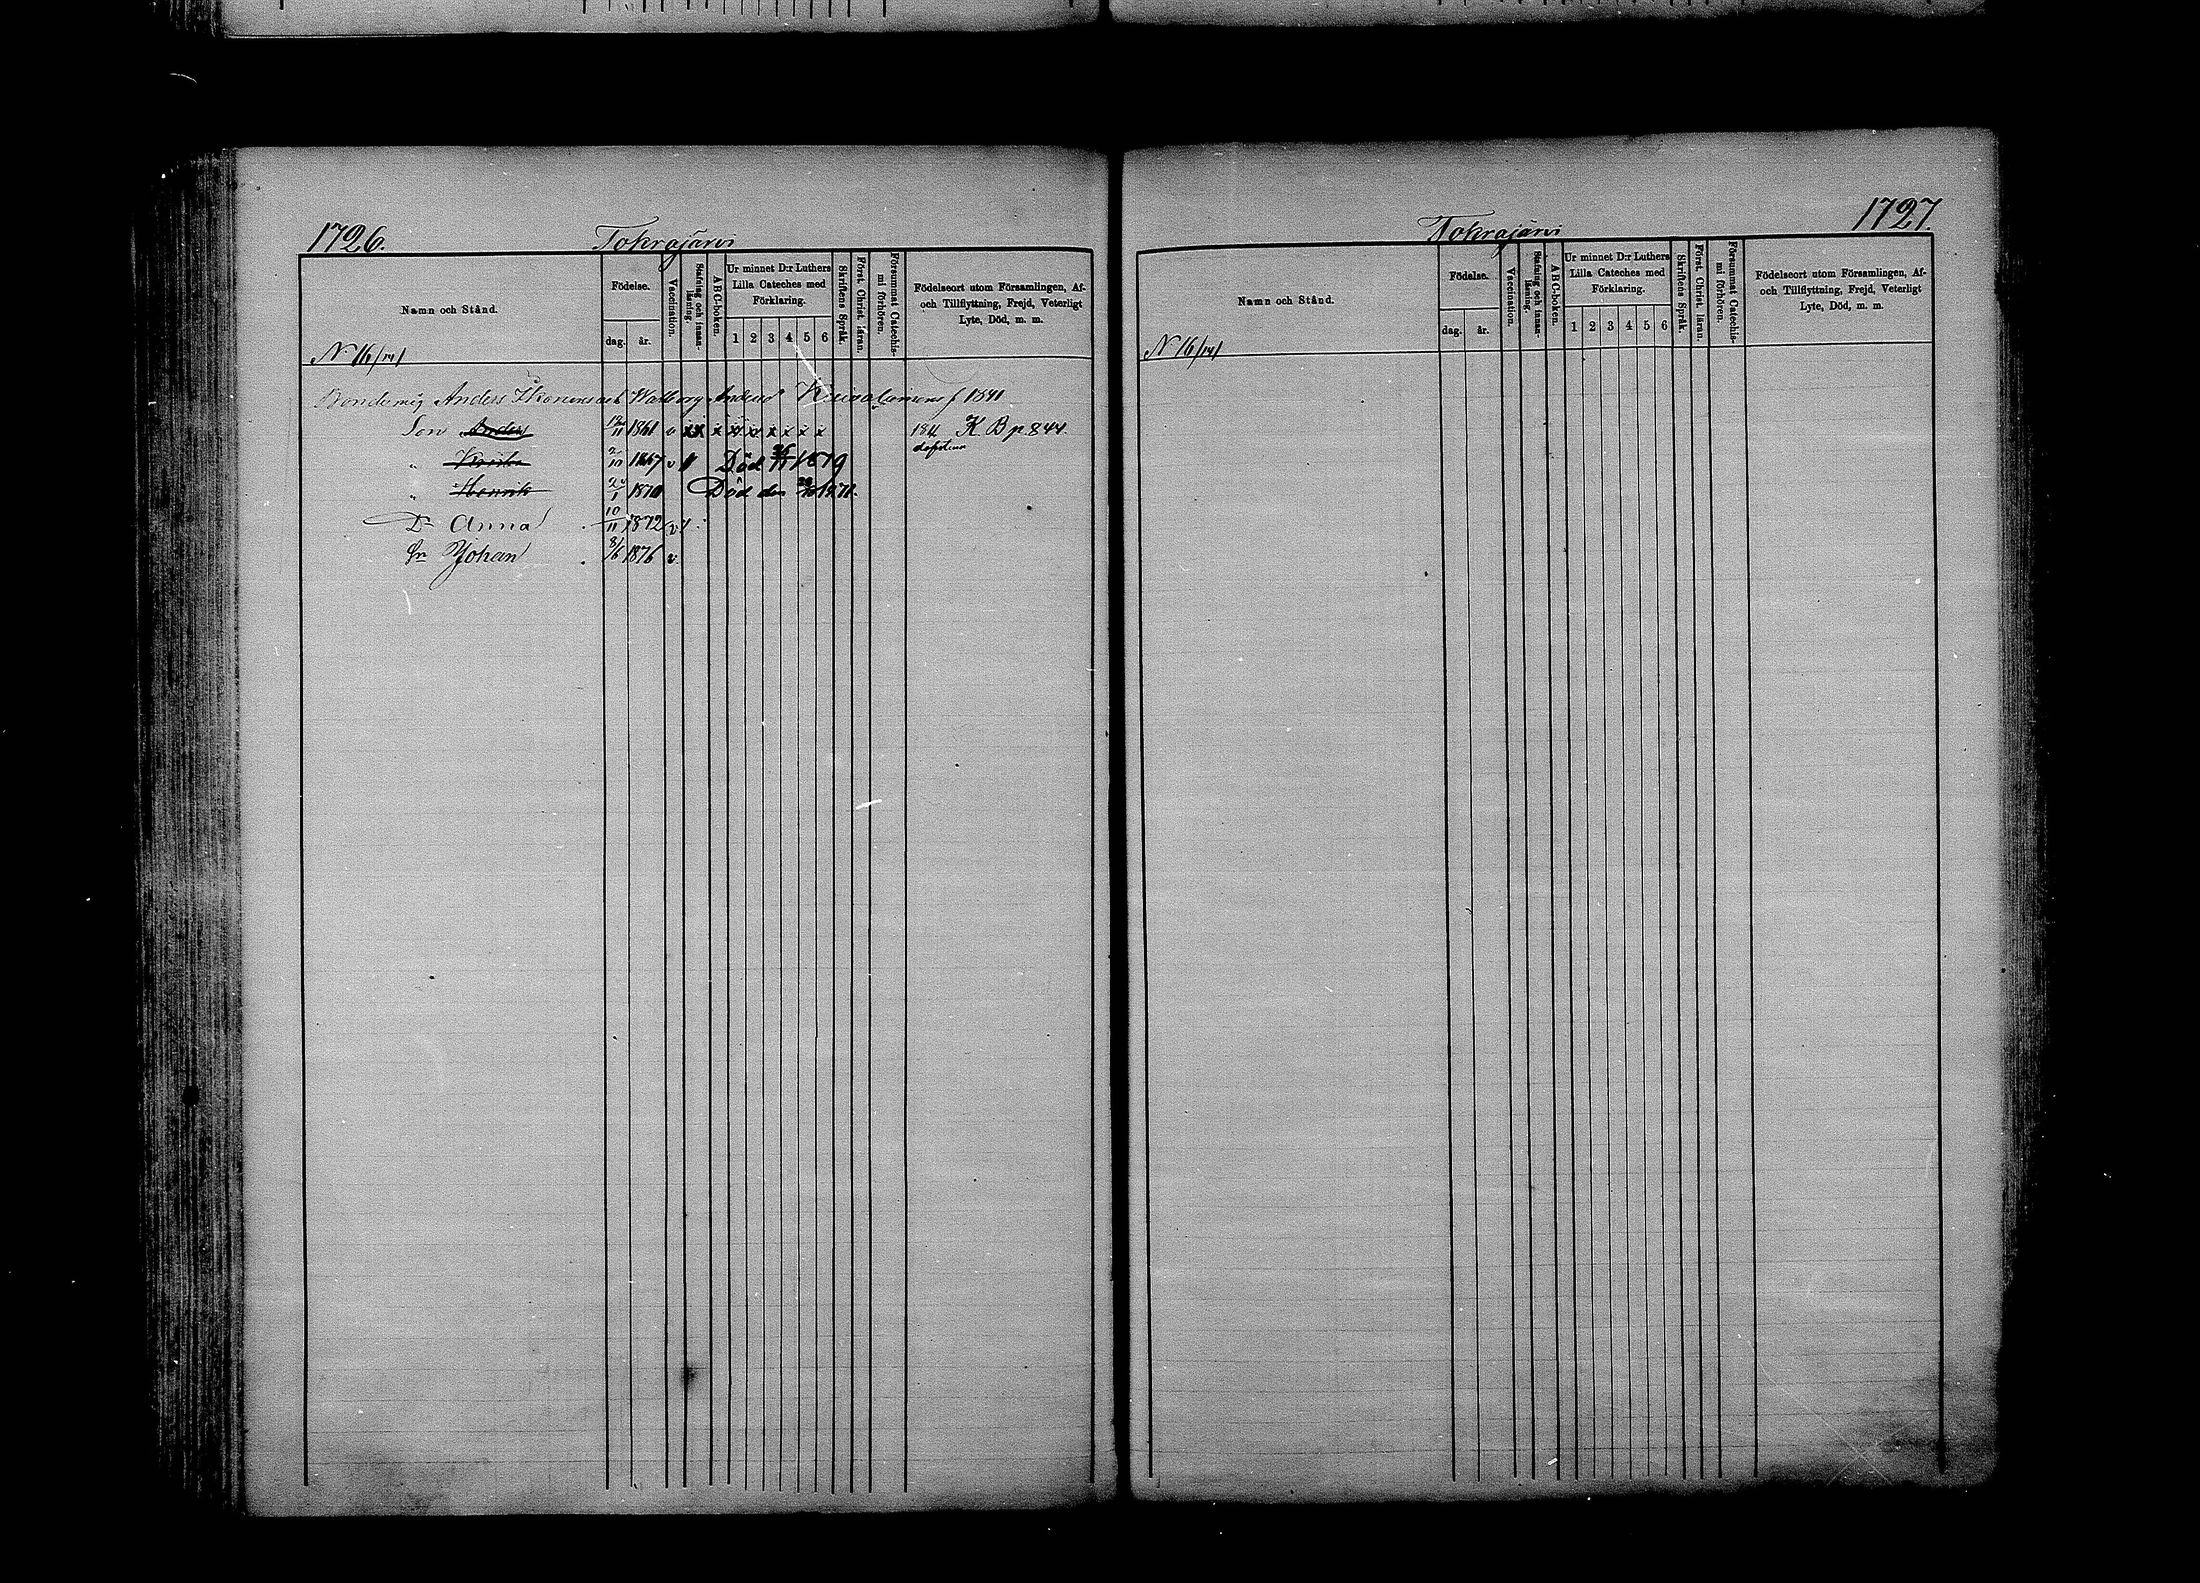 1726.
Tokrajärvi
Namn och Stånd.
Födelse.
dag. år.
Vaccination.
Stafning och innan-läsning.
ABC-boken.
Ur minnet D:r Luthers
Lilla Cateches med
Förklaring.
1 2 3 4 5 6
Skriftens Språk.
Först. Christ. läran.
Försummat Catechis-
mi förhören.
Födelseort utom Församlingen, Af-
och Tillflyttning, Frejd, Veterligt
Lyte, Död, m. m.
N 16/141
Anders Ikonens och Walborg Anders
Son Anders 11 1861 v x x x x x x x K. B p. 844.
" 2/10 1867 v Död 1879
" Henrik 1870 Död den
Dr Anna 10/11 1872 v
Sn Johan 8/6 1876 v.
1727.
Tokrajärvi
Namn och Stånd.
Födelse.
dag. år.
Vaccination.
Stafning och innan-
läsning.
ABC-boken.
Ur minnet D:r Luthers
Lilla Cateches med
Förklaring.
1 2 3 4 5 6
Skriftens Språk.
Först. Christ. läran.
Försummat Catechis-
mi förhören.
Födelseort utom Församlingen, Af-
och Tillflyttning, Frejd, Veterligt
Lyte, Död, m. m.
N 16/141